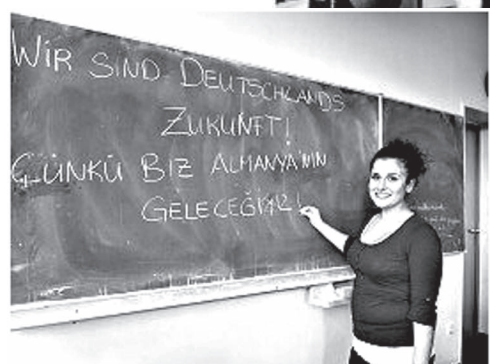 WIR SIND DEUTSCHLANDS
ZUKUNFT!
ÇÜNKÜ BIZ ALMANYA'NIN
GELECEĞIYIZ!